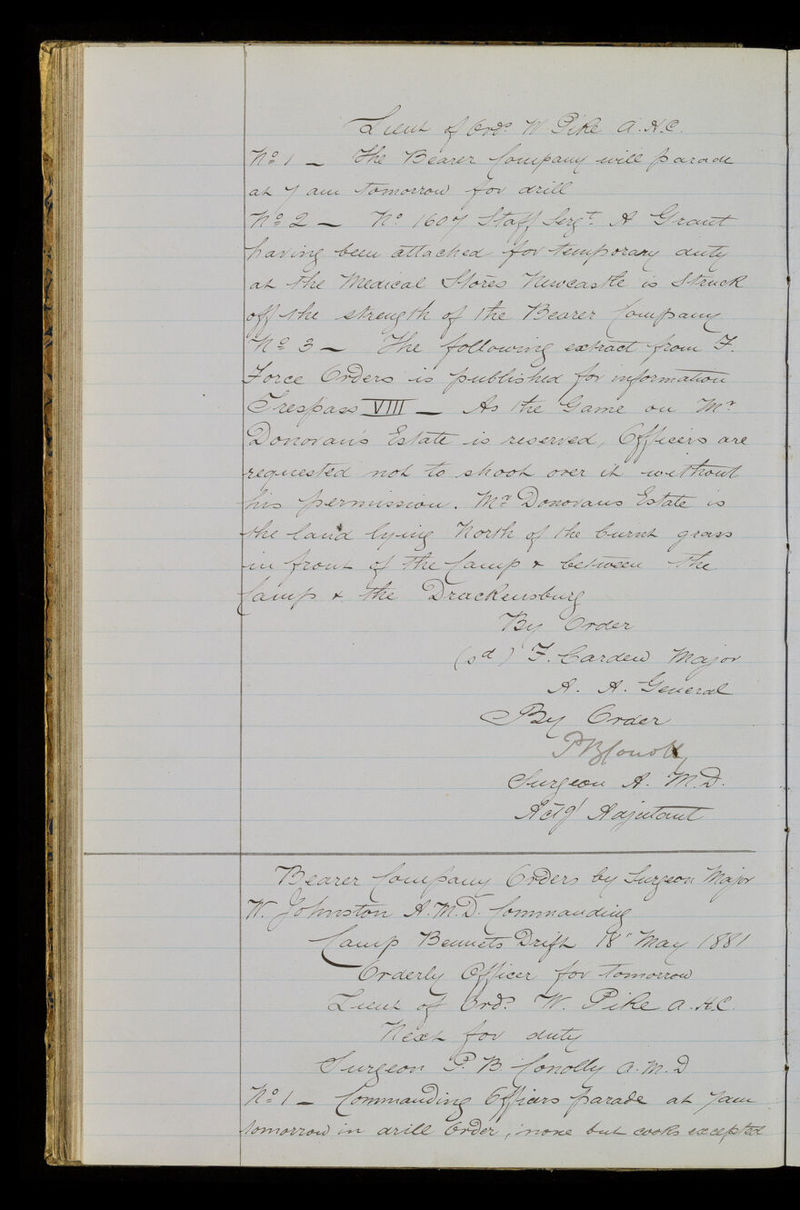 Lieut of Ords W Pike A.H.C.
No 1 — The Bearer Company will parade
at 7 am tomorrow for drill
No 2 — No 1607 Staff Sergt. A Grant
having been attached for temporary duty
at the Medical Stores Newcastle is Struck
off the strength of the Bearer Company
No 3 — The following extract from F.
Force Orders is published for information
Trespass VIII — As the Game on Mr
Donovan's Estate is reserved, Officers are
requested not to shoot over it without
his permission. Mr Donovans Estate is
the land lying North of the burnt grass
in front of the Camp & between the
Camp & the Drackensburg
By Order
(sd) F. Carden Major
A. A. General
By Order
P B Conolly
Surgeon A. M.D.
Actg Adjutant
Bearer Company Orders by Surgeon Major
W. Johnston A.M.D. Commanding
Camp Bennets Drift 18" May 1881
Orderly Officer for tomorrow
Lieut of Ords W. Pike A.H.C.
Next for duty
Surgeon P. B Conolly A.M.D
No 1 — Commanding Officers parade at 7am
tomorrow in drill Order, none but cooks excepted